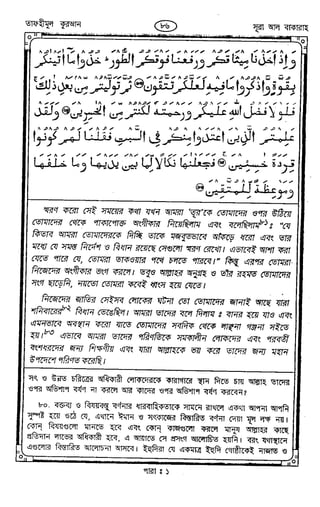 তাফহীমুল কুরআন
৮৬
সূরা আল বাকারাহ
وَإِذْ أَخَذْنَا مِيثَاقَكُمْ وَرَفَعْنَا فَوْقَكُمُ الطُّورَ خُذُوا مَا آتَيْنٰكُمْ
بِقُوَّةٍ وَاذْكُرُوا مَا فِيهِ لَعَلَّكُمْ تَتَّقُونَ ۞ ثُمَّ تَوَلَّيْتُمْ مِنْ بَعْدِ ذٰلِكَ
فَلَوْلَا فَضْلُ اللهِ عَلَيْكُمْ وَرَحْمَتُهُ لَكُنْتُمْ مِنَ الْخٰسِرِينَ ۞ وَلَقَدْ
عَلِمْتُمُ الَّذِينَ اعْتَدَوْا مِنْكُمْ فِي السَّبْتِ فَقُلْنَا لَهُمْ كُونُوا
قِرَدَةً خٰسِئِينَ ۞ فَجَعَلْنٰهَا نَكَالًا لِمَا بَيْنَ يَدَيْهَا وَمَا خَلْفَهَا
وَمَوْعِظَةً لِلْمُتَّقِينَ ۞
স্মরণ করো সেই সময়ের কথা যখন আমরা 'তূর'কে তোমাদের ওপর উঠিয়ে
তোমাদের থেকে পাকাপোক্ত অংগীকার নিয়েছিলাম এবং বলেছিলাম : "যে
কিতাব আমরা তোমাদেরকে দিচ্ছি তাকে মজবুতভাবে আঁকড়ে ধরো এবং তার
মধ্যে যে সমস্ত নির্দেশ ও বিধান রয়েছে সেগুলো স্মরণ রেখো। এভাবেই আশা করা
যেতে পারে যে, তোমরা তাকওয়ার পথে চলতে পারবে।" কিন্তু এরপর তোমরা
নিজেদের অংগীকার ভংগ করলে। তবুও আল্লাহর অনুগ্রহ ও তাঁর রহমত তোমাদের
সংগ ছাড়েনি, নয়তো তোমরা কবেই ধ্বংস হয়ে যেতে।
নিজেদের জাতির সেইসব লোকের ঘটনা তো তোমাদের জানাই আছে যারা
শনিবারের বিধান ভেঙেছিল। আমরা তাদের বলে দিলাম : বানর হয়ে যাও এবং
এমনভাবে অবস্থান করো যাতে তোমাদের সবদিক থেকে লাঞ্ছনা গঞ্জনা সইতে
হয়। এভাবে আমরা তাদের পরিণতিকে সমকালীন লোকদের এবং পরবর্তী
বংশধরদের জন্য শিক্ষণীয় এবং যারা আল্লাহকে ভয় করে তাদের জন্য মহান
উপদেশে পরিণত করেছি।
সৎ ও উন্নত চরিত্রের অধিকারী লোকদেরকে কারাগারে স্থান দিতে চায় আল্লাহ তাদের
ওপর অভিশাপ বর্ষণ না করলে আর কাদের ওপর অভিশাপ বর্ষণ করবেন?
৮০. বক্তব্য ও বিষয়বস্তু বর্ণনার ধারাবাহিকতাকে সামনে রাখলে একথা আপনা আপনি
সুস্পষ্ট হয়ে ওঠে যে, এখানে ঈমান ও সৎকাজের বিস্তারিত বর্ণনা দেয়া মূল লক্ষ নয়।
কোন্ বিষয়গুলো মানতে হবে এবং কোন্ কাজগুলো করলে মানুষ আল্লাহর কাছে
প্রতিদান লাভের অধিকারী হবে, এ আয়াতে সে প্রসংগ আলোচিত হয়নি। বরং যথাস্থানে
এগুলোর বিস্তারিত আলোচনা আসবে। ইহুদিরা যে একমাত্র ইহুদি গোষ্ঠীকেই নাজাত ও
পারা : ১